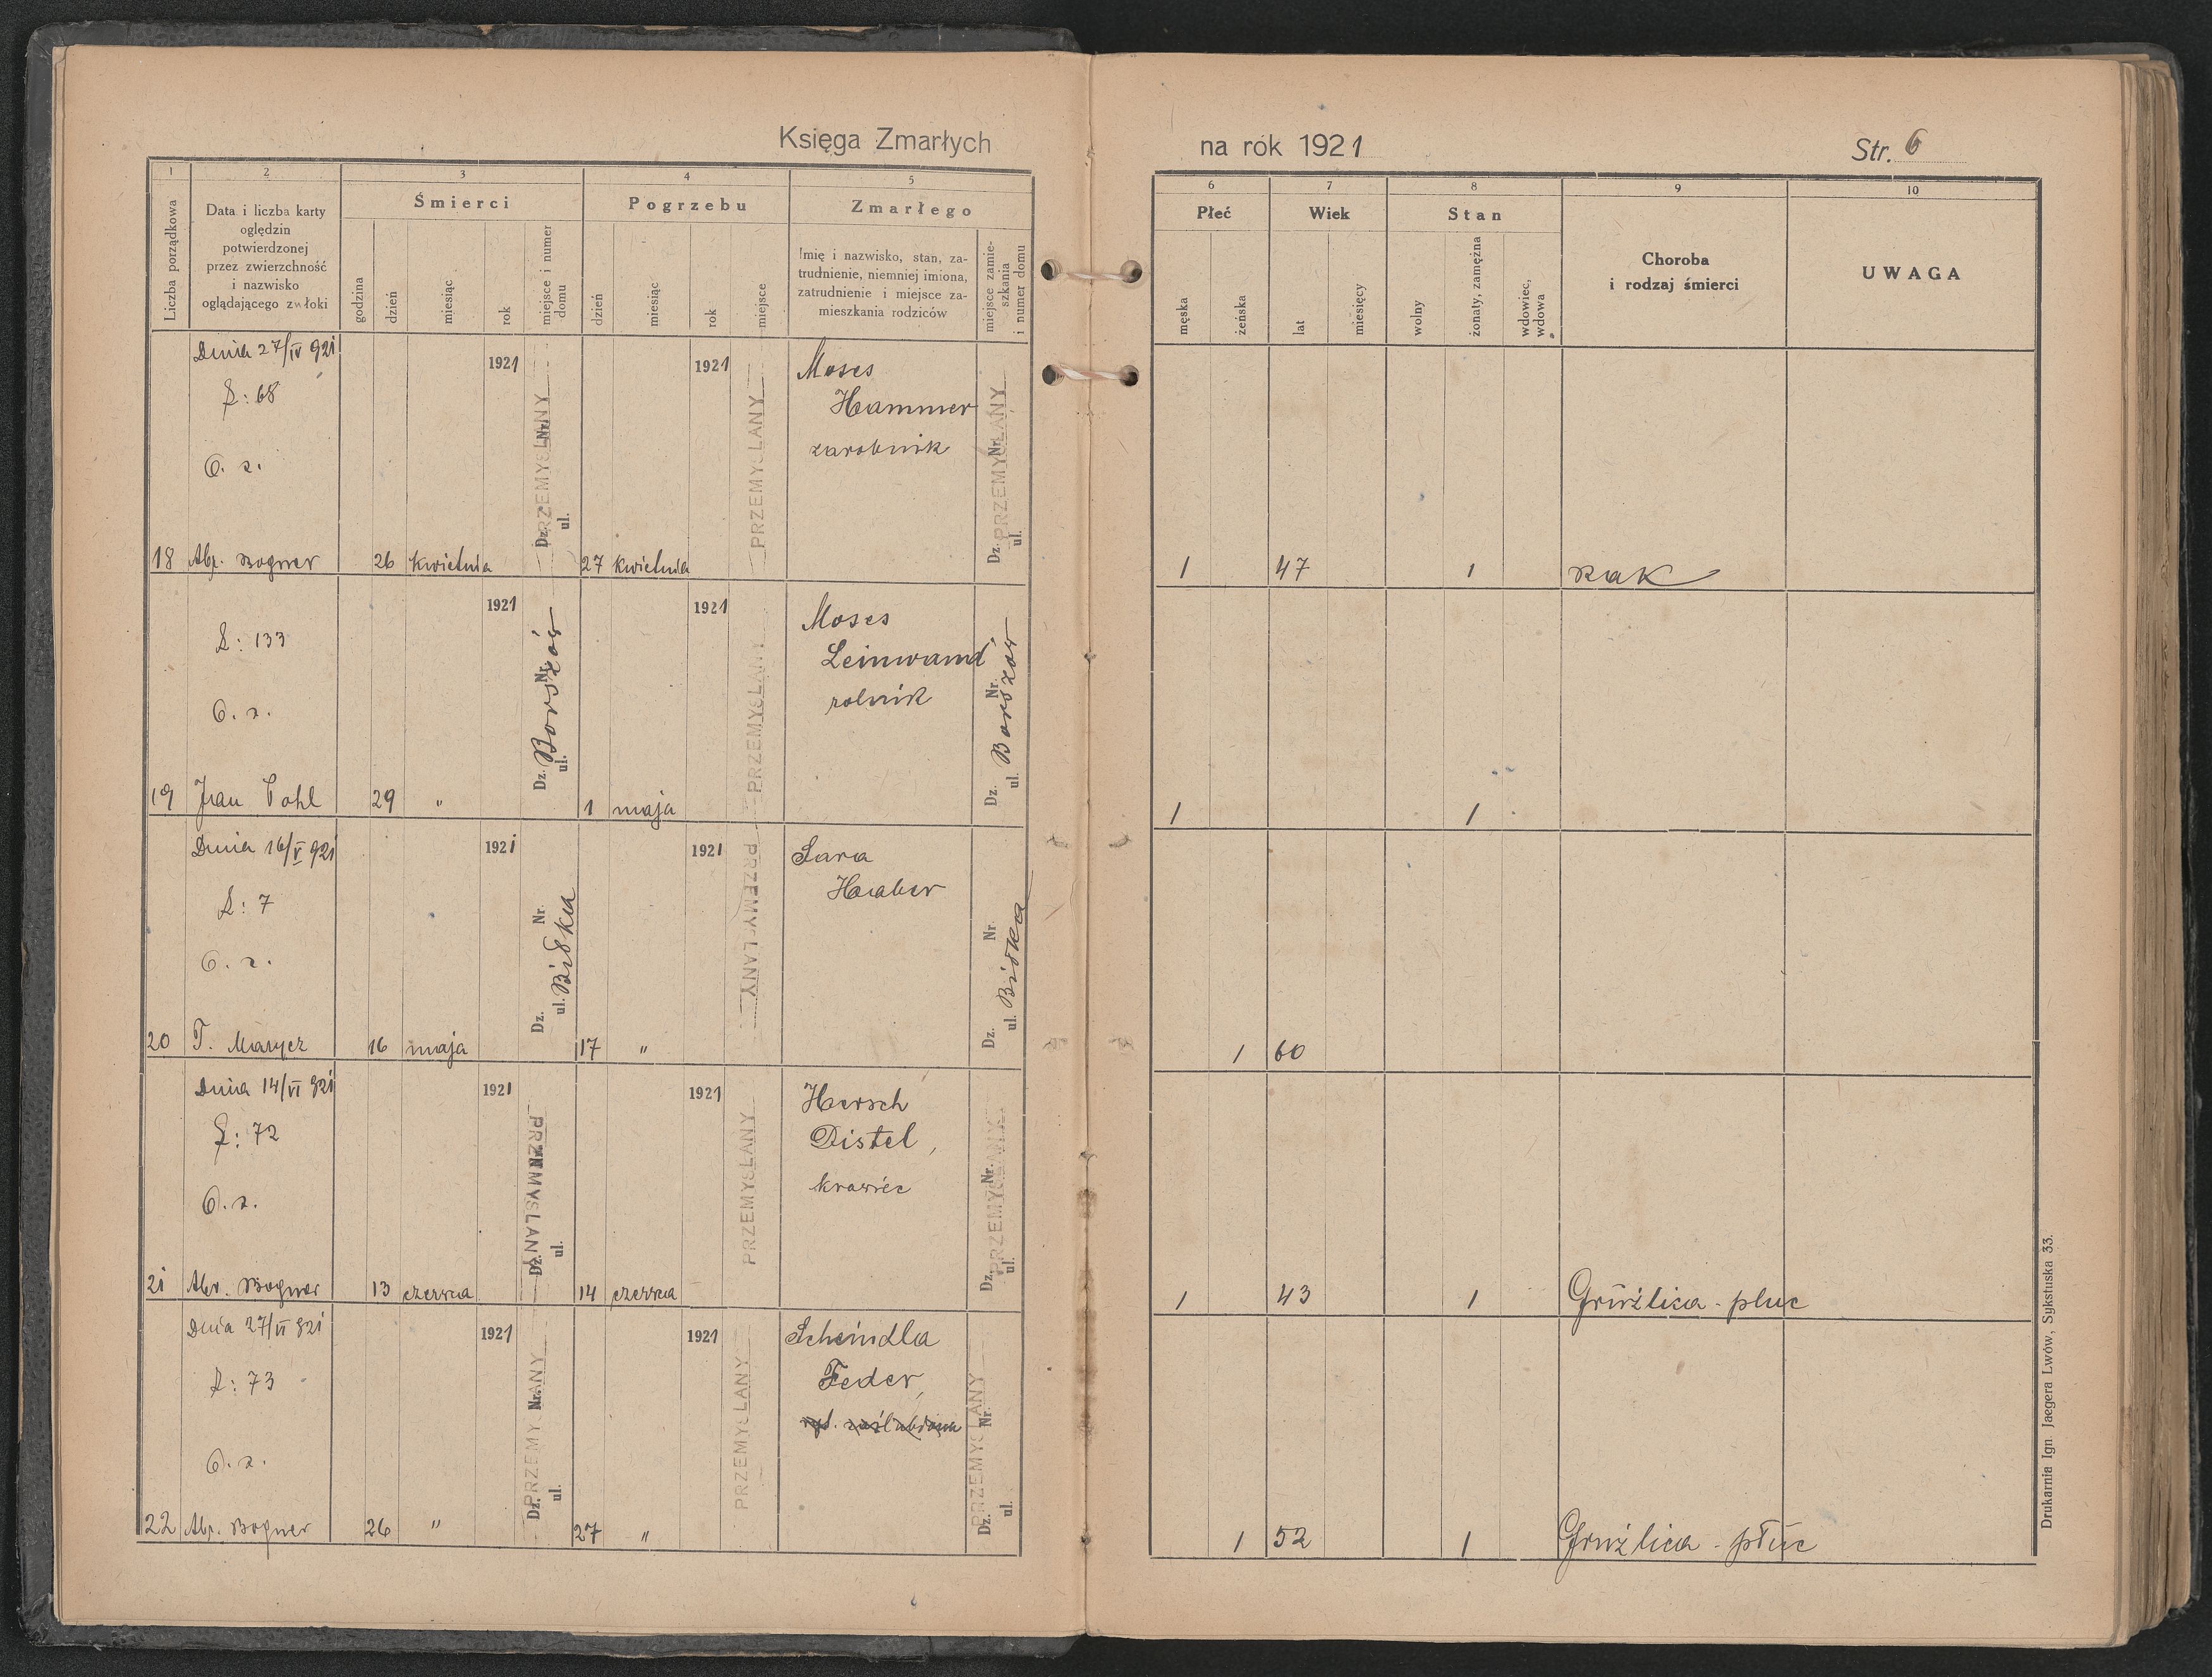 Księga Zmarłych na rok 1921 Str. 6
1 2 3 4 5 6 7 8 9 10
Liczba porządkowa
Data i liczba karty
oględzin
potwierdzonej
przez zwierzchność
i nazwisko
oglądającego zwłoki
Śmierci
godzina
dzień
miesiąc
rok
miejsce i numer
domu
Pogrzebu
dzień
miesiąc
rok
miejsce
Zmarłego
Imię i nazwisko, stan, za-
trudnienie, niemniej imiona,
zatrudnienie i miejsce za-
mieszkania rodziców
miejsce zamie-
szkania
i numer domu
Płeć
męska
żeńska
Wiek
lat
miesięcy
Stan
wolny
żonaty, zamężna
wdowiec,
wdowa
Choroba
i rodzaj śmierci
UWAGA
Dnia 27/IV 921
L: 68
O. z.
18 Abr. Bogner
26 kwietnia 1921
Dz. Nr.
ul.
PRZEMYSLANY
27 kwietnia 1921
PRZEMYSLANY
Moses
Hammer
zarobnik
Dz. Nr.
ul.
PRZEMYSLANY
1 47 1 Rak
L: 133
O. z.
19 Jan Pohl
29 " 1921
Dz. Nr.
ul.
Borszów
1 maja 1921
PRZEMYSLANY
Moses
Leinwand
rolnik
Dz. Nr.
ul. Borszów
1 1
Dnia 16/V 921
L: 7
O. z.
20 T. Marycz
16 maja 1921
Dz. Nr.
ul. Biłka
17 " 1921
PRZEMYSLANY
Sara
Haber
Dz. Nr.
ul. Biłka
1 60
Dnia 14/VI 921
L: 72
O. z.
21 Abr. Bogner
13 czerwca 1921
Dz. Nr.
ul.
PRZEMYSLANY
14 czerwca 1921
PRZEMYSLANY
Hersch
Distel,
krawiec
Dz. Nr.
ul.
PRZEMYSLANY
1 43 1 Gruźlica - płuc
Dnia 27/VI 921
L: 73
O. z.
22 Abr. Bogner
26 " 1921
Dz. Nr.
ul.
PRZEMYSLANY
27 " 1921
PRZEMYSLANY
Scheindla
Feder,
Dz. Nr.
ul.
PRZEMYSLANY
1 52 1 Gruźlica - płuc
Drukarnia Ign. Jaegera Lwów, Sykstuska 33.